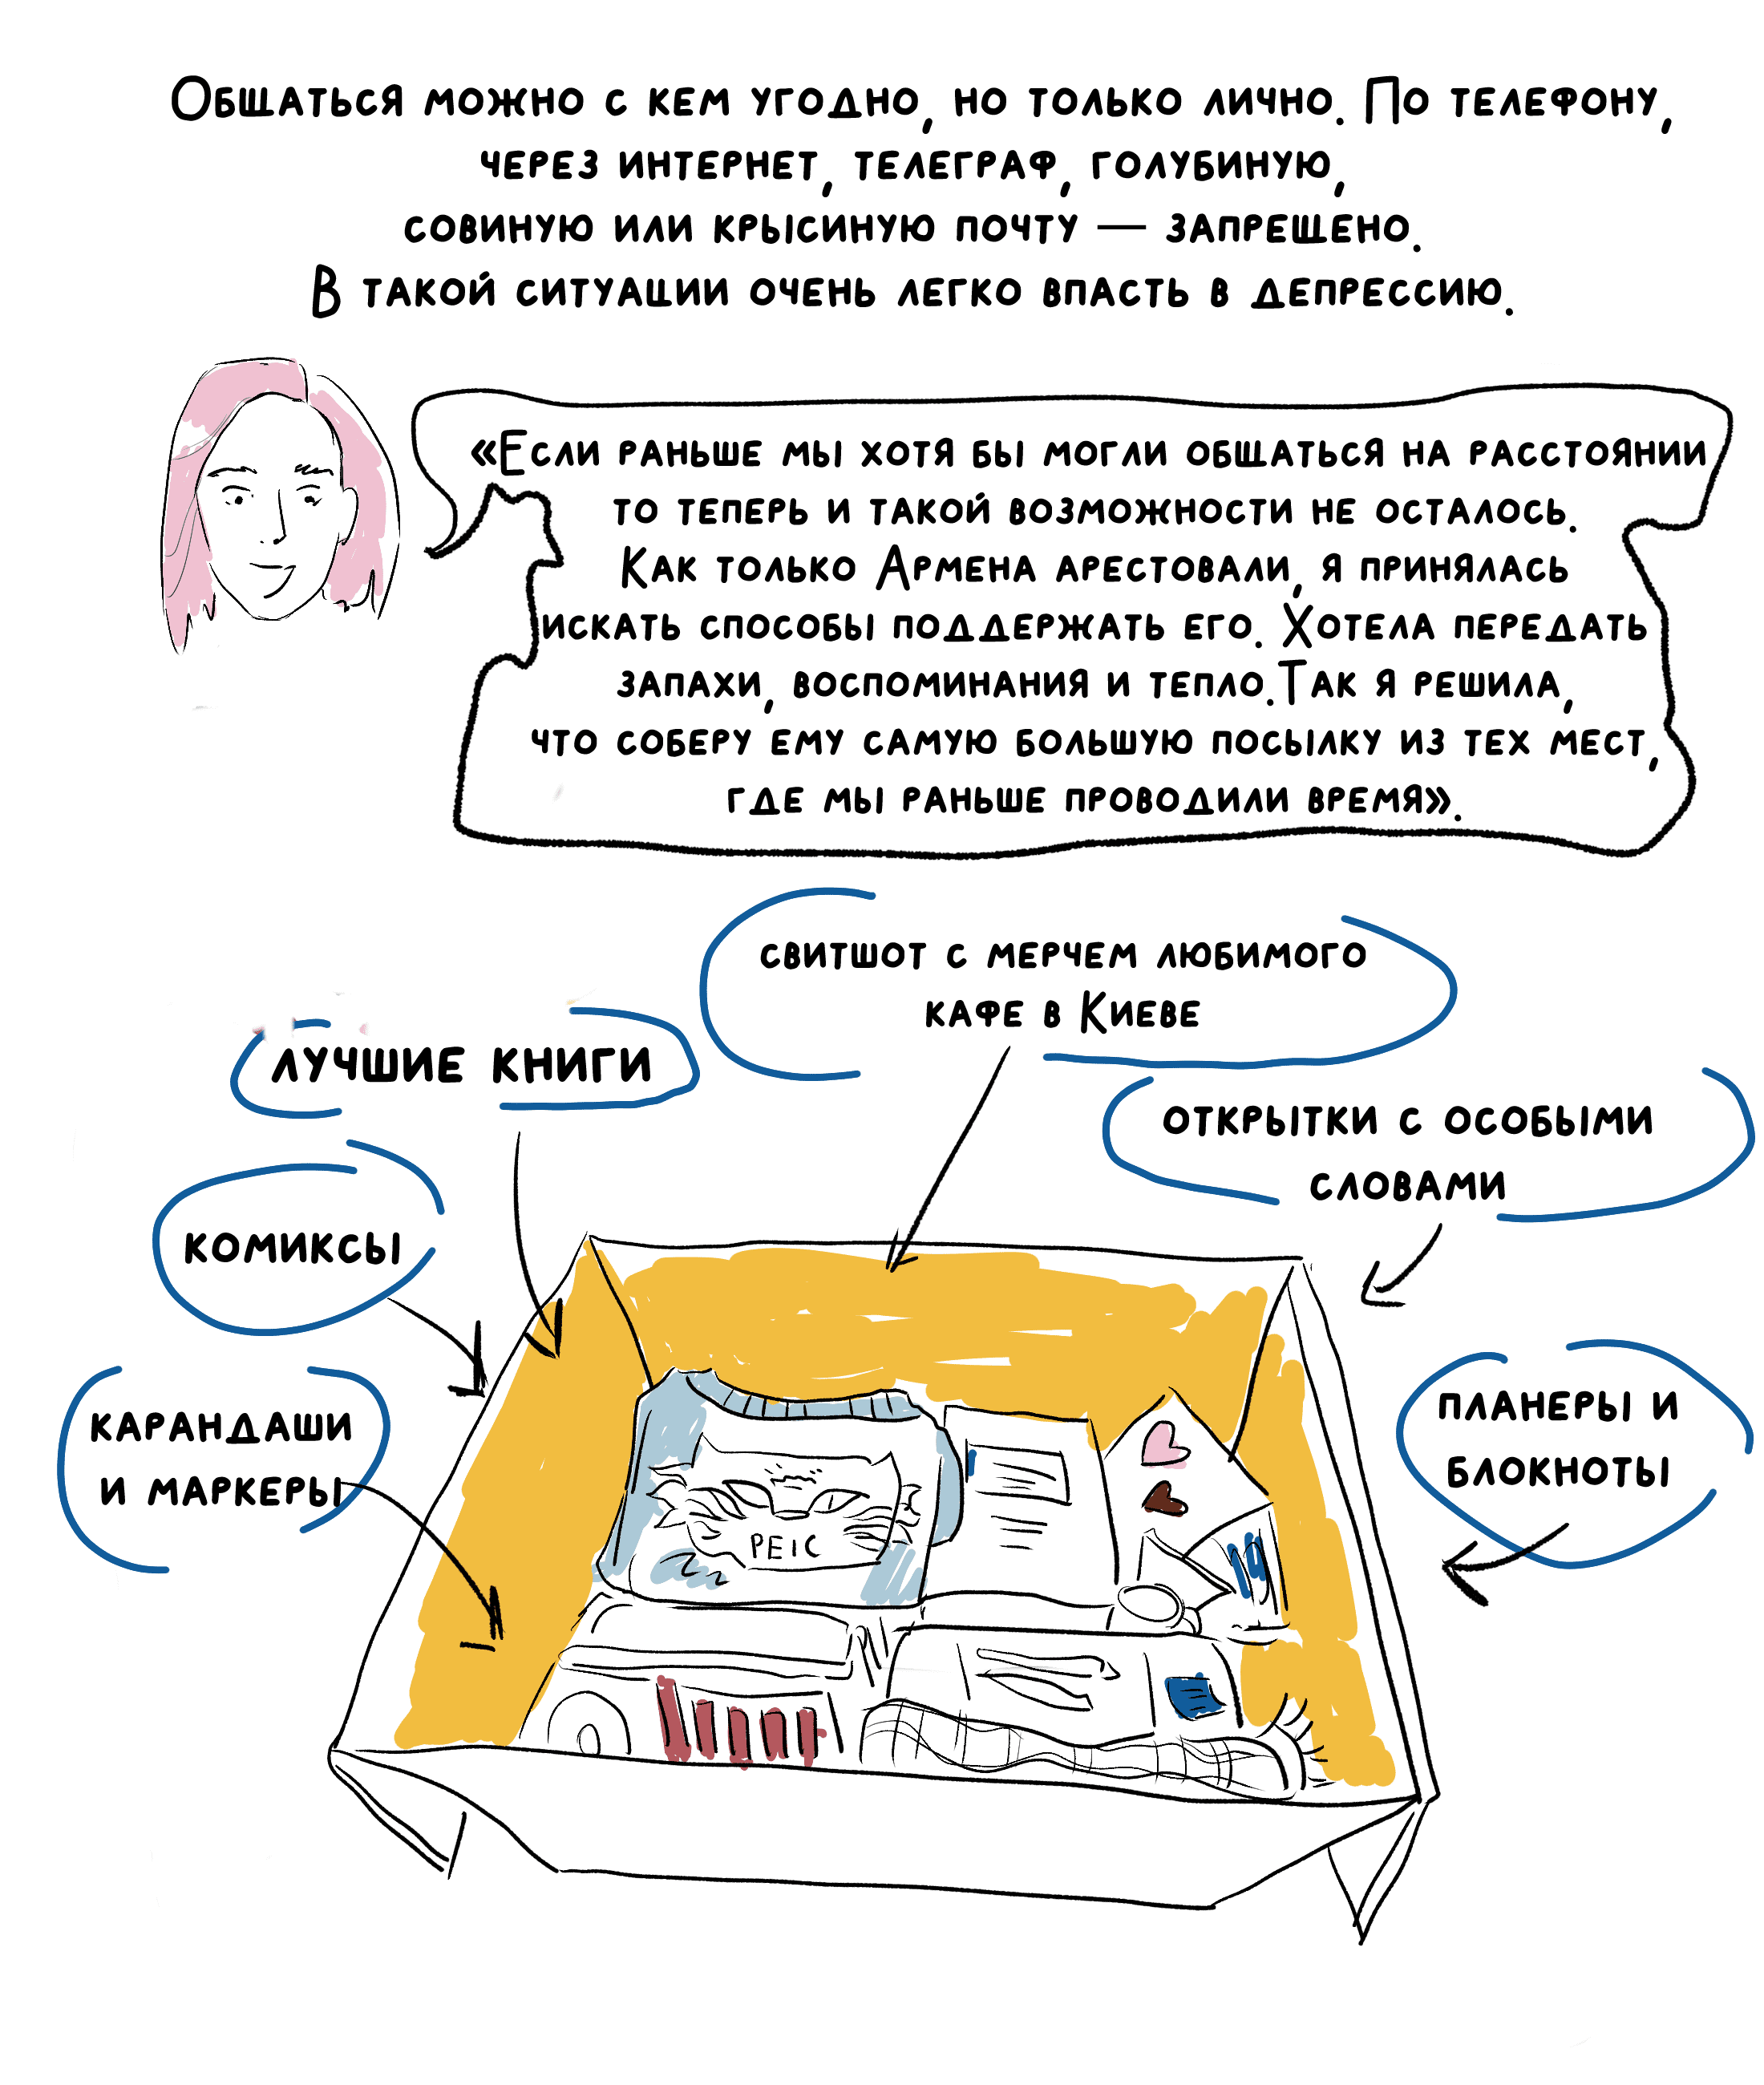 Общаться можно с кем угодно, но только лично. По телефону,
через интернет, телеграф, голубиную,
совиную или крысиную почту — запрещено.
В такой ситуации очень легко впасть в депрессию.
«Если раньше мы хотя бы могли общаться на расстоянии
то теперь и такой возможности не осталось.
Как только Армена арестовали, я принялась
искать способы поддержать его. Хотела передать
запахи, воспоминания и тепло. Так я решила,
что соберу ему самую большую посылку из тех мест,
где мы раньше проводили время».
свитшот с мерчем любимого
кафе в Киеве
лучшие книги
открытки с особыми
словами
комиксы
карандаши
и маркеры
планеры и
блокноты
РЕІС